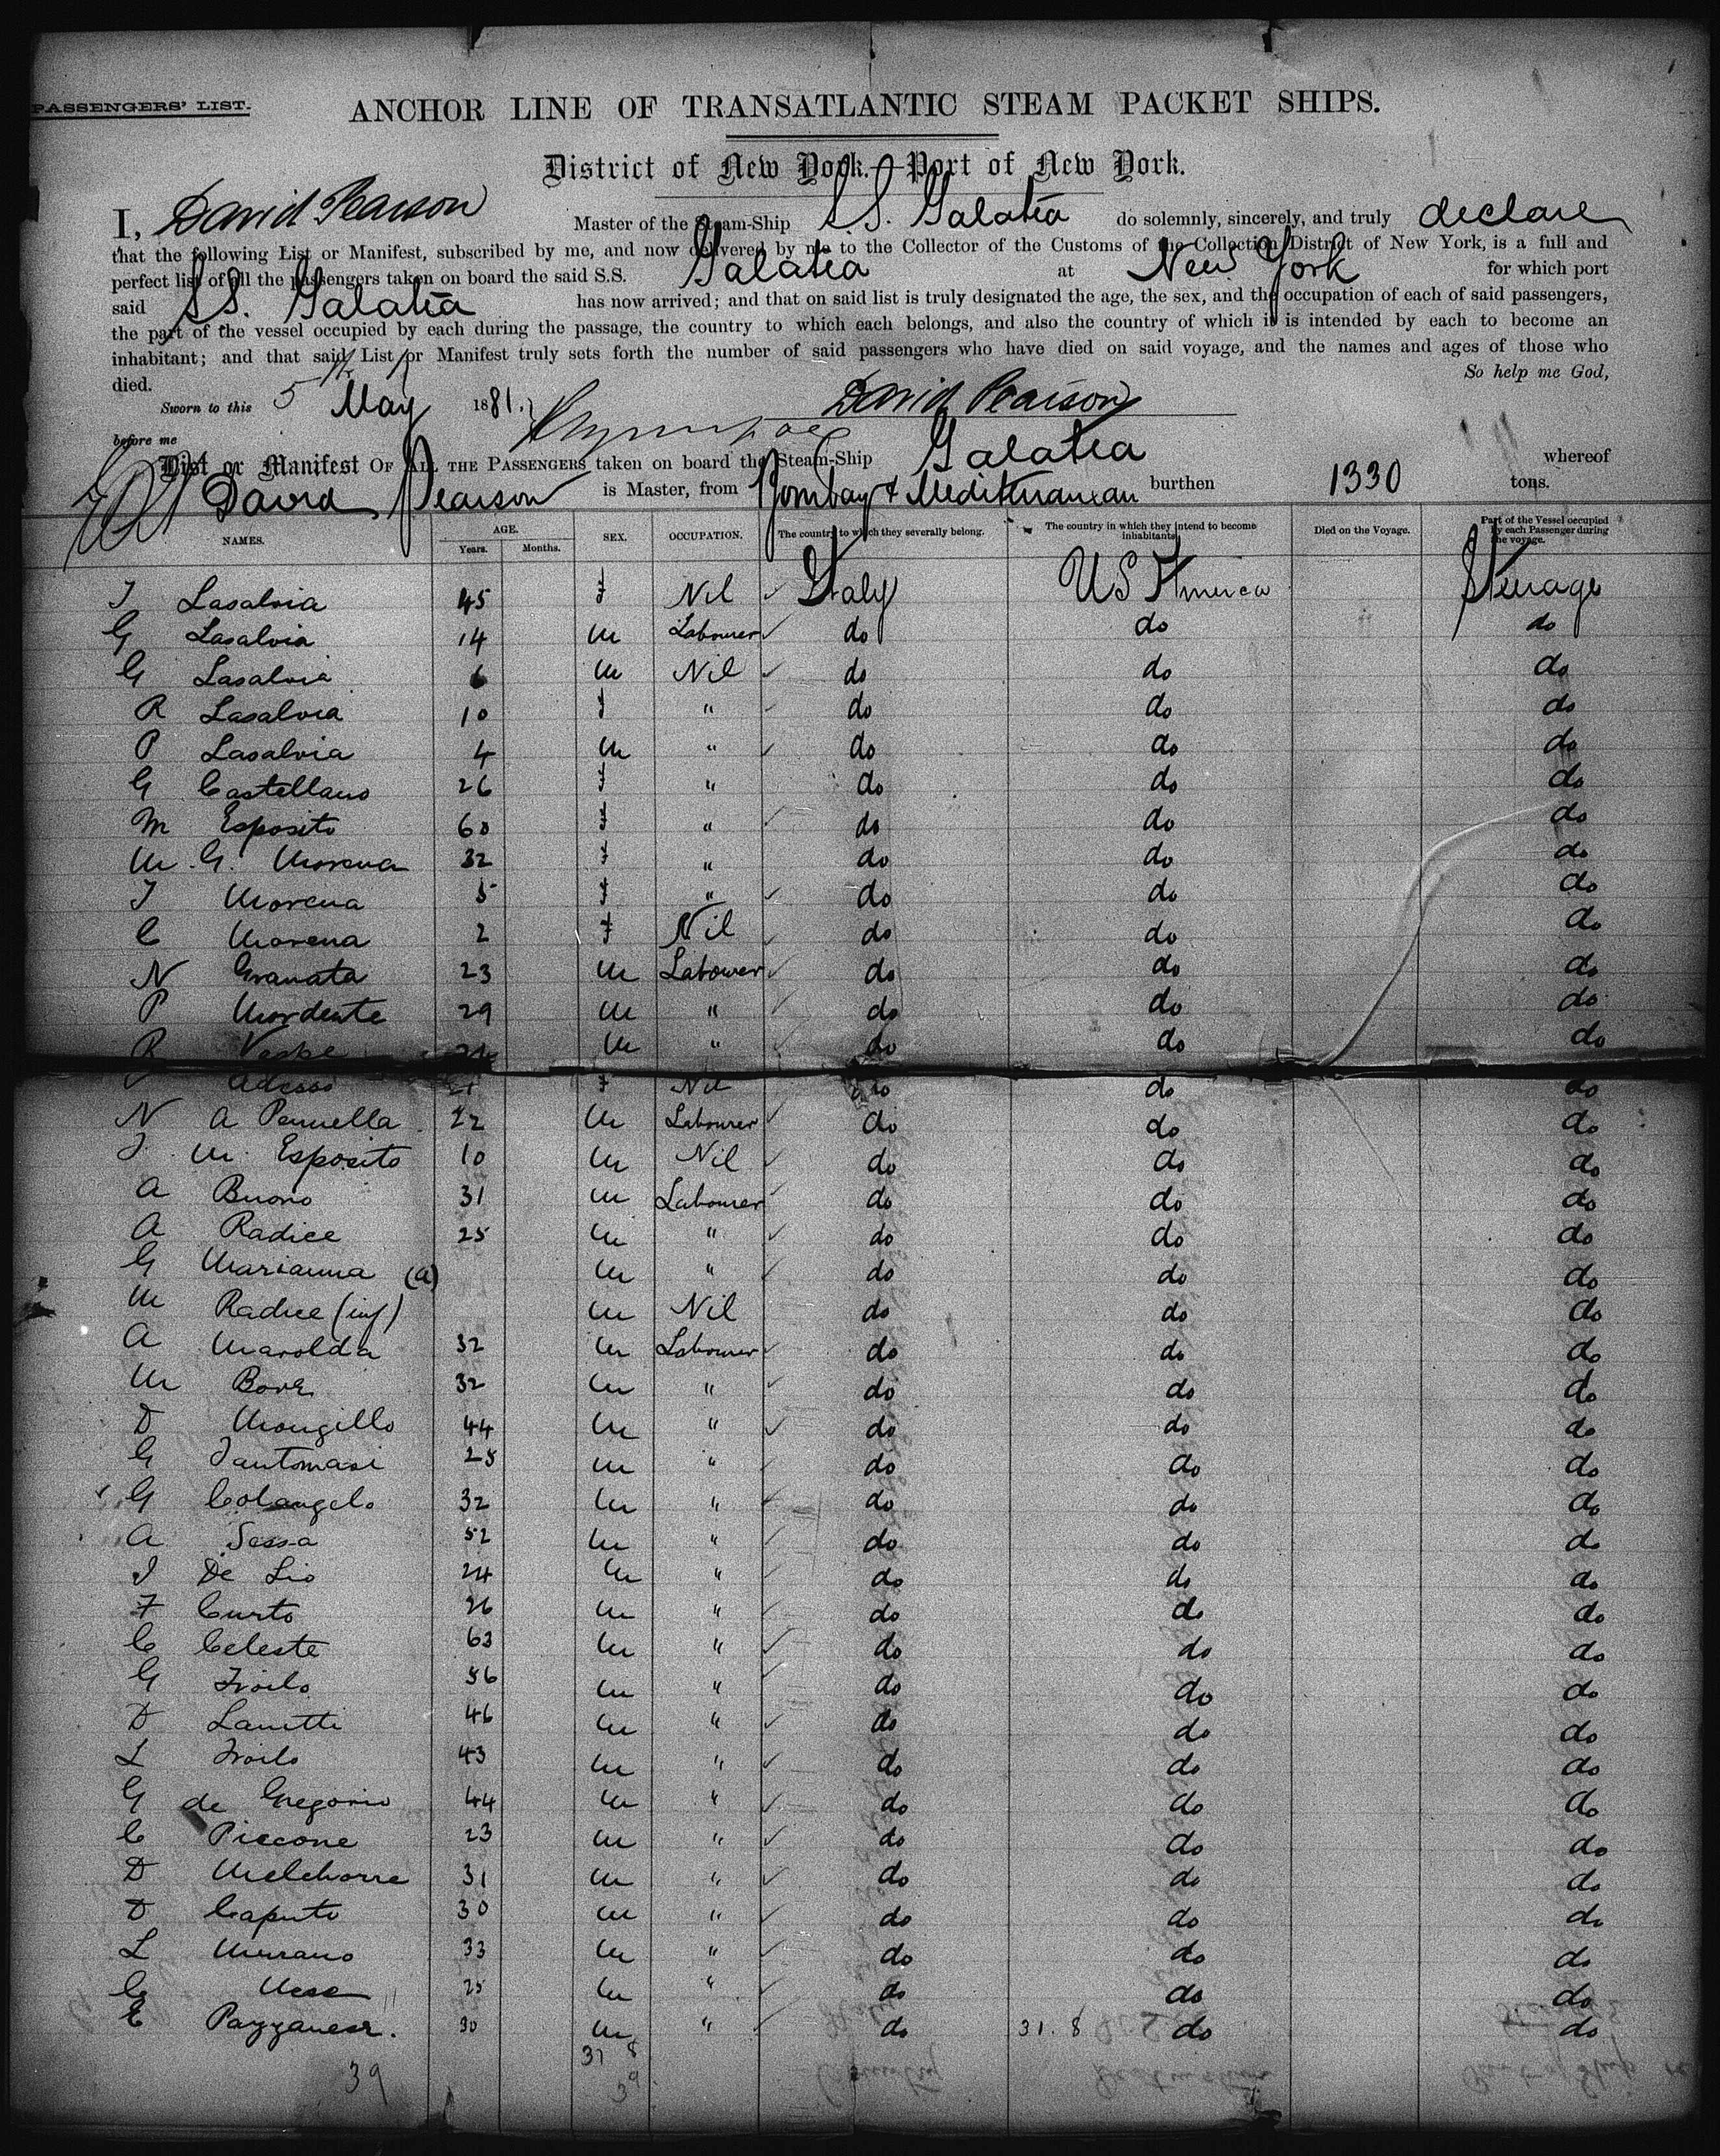 PASSENGERS' LIST.
ANCHOR LINE OF TRANSATLANTIC STEAM PACKET SHIPS.
District of New York.—Port of New York.
I, David Pearson Master of the Steam-Ship S.S. Galatea do solemnly, sincerely, and truly declare
that the following List or Manifest, subscribed by me, and now delivered by me to the Collector of the Customs of the Collection District of New York, is a full and
perfect list of all the passengers taken on board the said S.S. Galatea at New York for which port
said S.S. Galatea has now arrived; and that on said list is truly designated the age, the sex, and the occupation of each of said passengers,
the part of the vessel occupied by each during the passage, the country to which each belongs, and also the country of which it is intended by each to become an
inhabitant; and that said List or Manifest truly sets forth the number of said passengers who have died on said voyage, and the names and ages of those who
died. So help me God,
Sworn to this 5th May 1881. David Pearson
before me
List or Manifest OF ALL THE PASSENGERS taken on board the Steam-Ship Galatea whereof
David Pearson is Master, from Bombay & Mediterranean burthen 1330 tons.
NAMES. AGE. Years. Months. SEX. OCCUPATION. The country to which they severally belong. The country in which they intend to become inhabitants. Died on the Voyage. Part of the Vessel occupied by each Passenger during the voyage.
J Lasalvia 45 f Nil Italy US America Steerage
G Lasalvia 14 m Labourer do do do
G Lasalvia 6 m Nil do do do
R Lasalvia 10 f " do do do
P Lasalvia 4 m " do do do
G Castellano 26 f " do do do
M Esposito 60 f " do do do
M. G. Morena 32 f " do do do
J Morena 5 f " do do do
C Morena 2 f Nil do do do
N Granata 23 m Labourer do do do
P Mordente 29 m " do do do
R m " do do do
Adesso 21 f Nil do do do
N A Pennella 22 m Labourer do do do
J. M. Esposito 10 m Nil do do do
A Buono 31 m Labourer do do do
A Radice 25 m " do do do
G Marianna (a) m " do do do
M Radice (inf) m Nil do do do
A Marolda 32 m Labourer do do do
M Bove 32 m " do do do
D Mongillo 44 m " do do do
G Santomasi 25 m " do do do
G Colangelo 32 m " do do do
A Sessa 52 m " do do do
J De Lio 24 m " do do do
F Curto 26 m " do do do
C Celeste 63 m " do do do
G Troilo 56 m " do do do
D 46 m " do do do
L Troilo 43 m " do do do
G de Gregorio 44 m " do do do
C Piccone 23 m " do do do
D Melchorre 31 m " do do do
D Caputo 30 m " do do do
L Murano 33 m " do do do
C 25 m " do do do
E 30 m " do 31. 8 do do
31 8
39 39